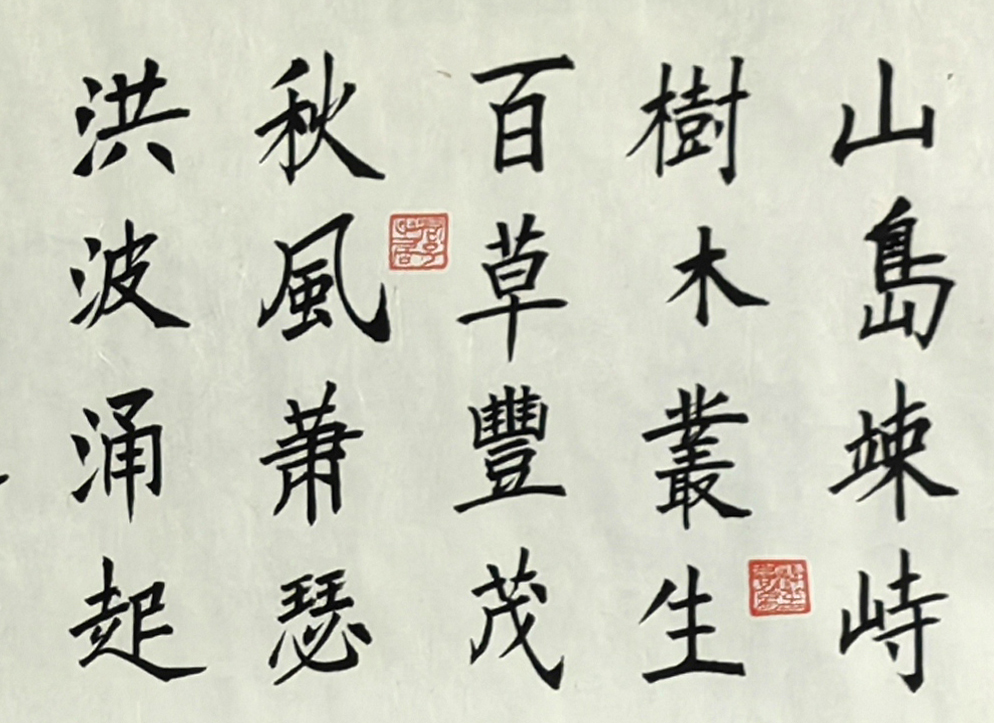 山島竦峙
樹木叢生
百草豐茂
秋風蕭瑟
洪波涌起